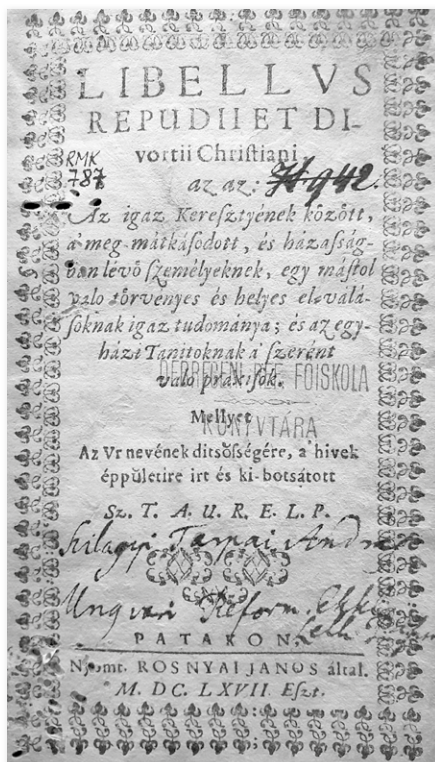 LIBELLVS
REPUDII ET DI-
vortii Chriſtiani
RMK
787
az az:
942.
Az igaz Kereſztyének között,
á meg-mátkáſodott, és házaſſág-
ban levö ſzemélyeknek, egy máſtol
valo törvenyes és helyes el-válá-
ſoknak igaz tudománya; és az egy-
házi Tanitoknak á ſzerént
való praxiſok.
DEBRECENI REF. FŐISKOLA
KÖNYVTÁRA
Mellyet
Az Vr nevének ditsőſségére, a hivek
éppületire irt és ki-botsátott
Sz. T. A. U. R. E. L. P.
Szilagyi Tarpai
Ungvari Reform.
PATAKON,
Nyomt. ROSNYAI JANOS által.
M. DC. LXVII Eſzt.